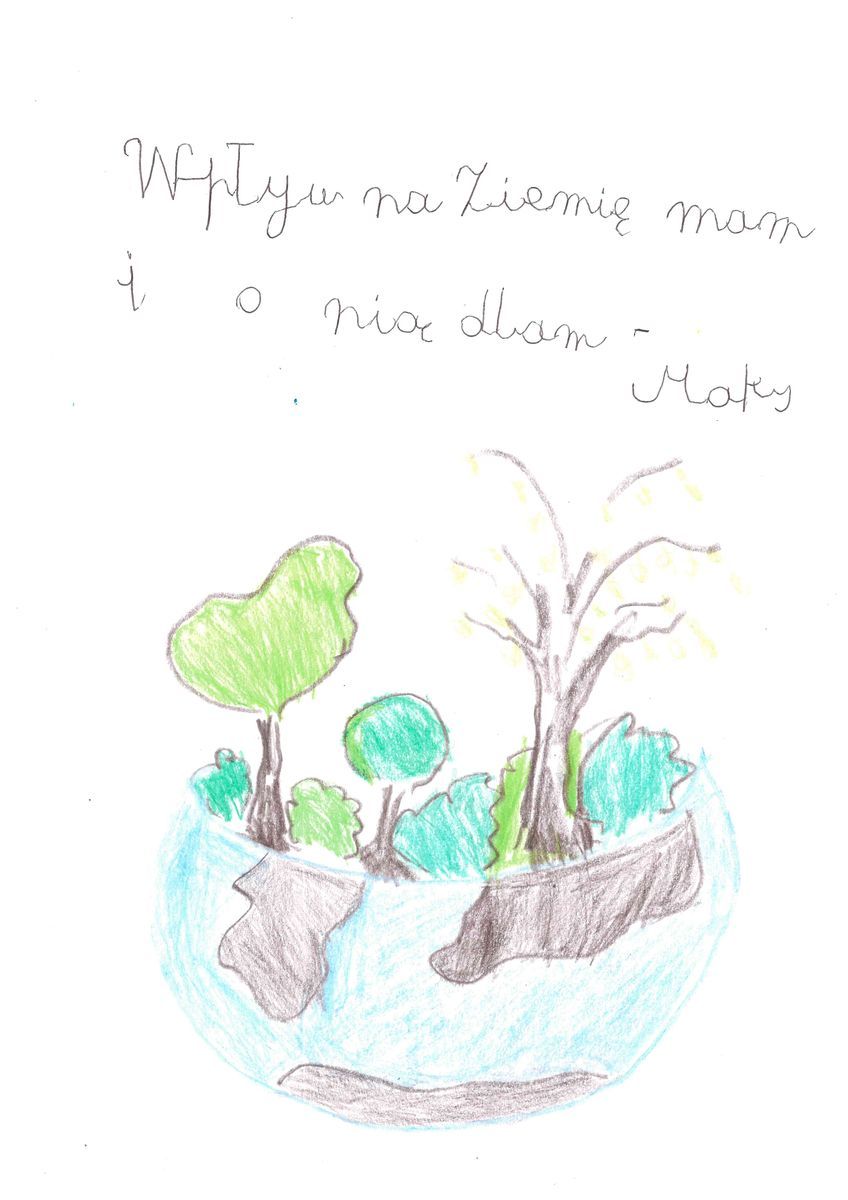 Wpływ na Ziemię mam
i o nią dbam -
Maks